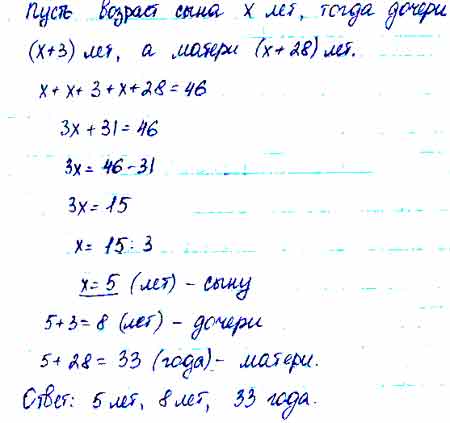 Пусть возраст сына x лет, тогда дочери
(x+3) лет, а матери (x+28) лет.
x + x + 3 + x + 28 = 46
3x + 31 = 46
3x = 46 - 31
3x = 15
x = 15 : 3
x = 5 (лет) - сыну
5+3 = 8 (лет) - дочери
5 + 28 = 33 (года) - матери.
Ответ: 5 лет, 8 лет, 33 года.